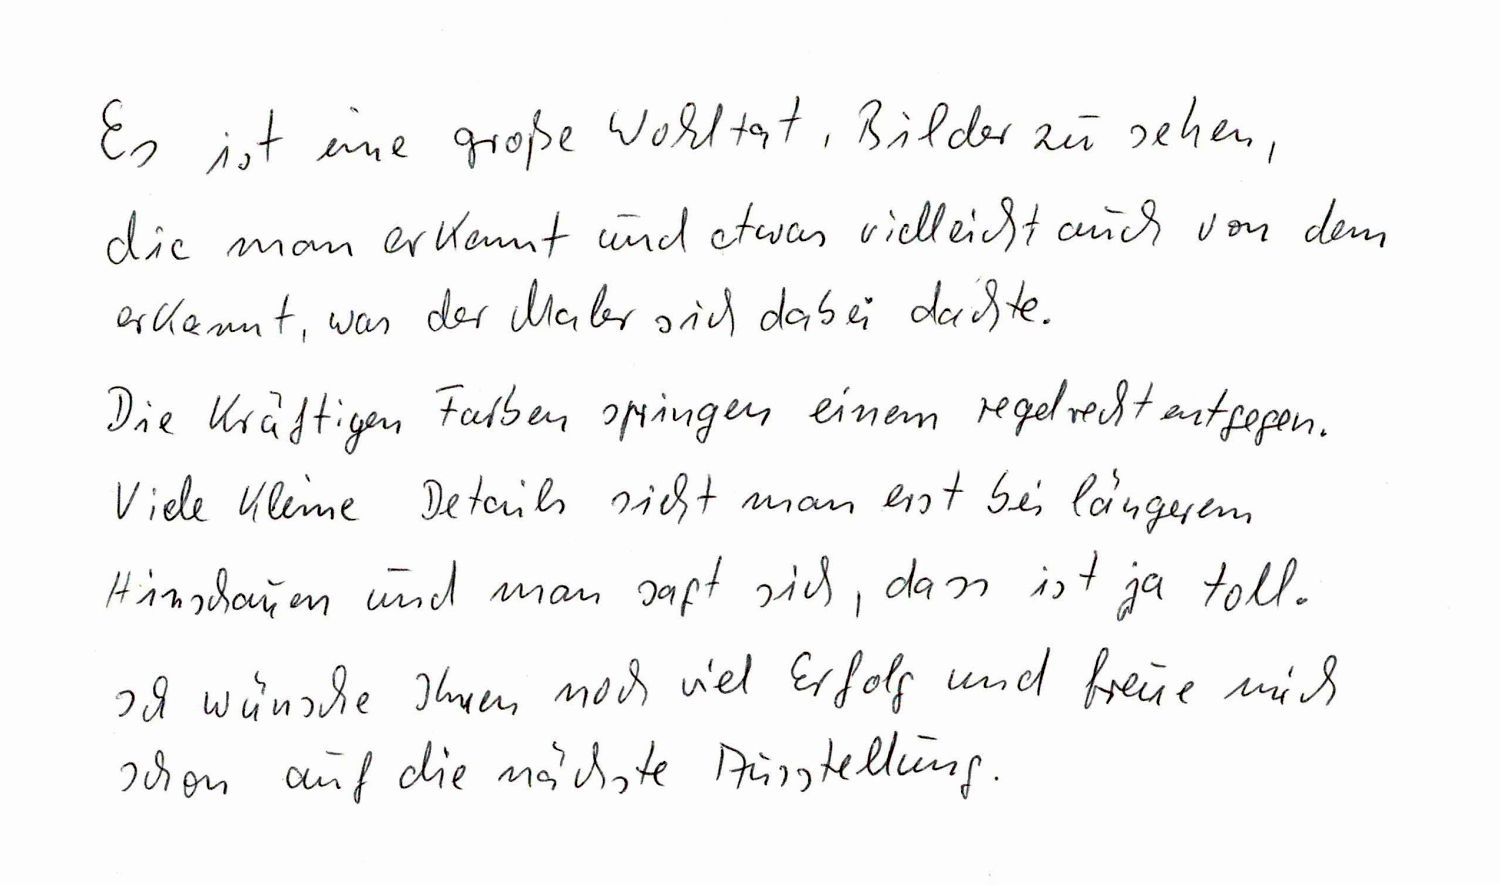 Es ist eine große Wohltat, Bilder zu sehen,
die man erkennt und etwas vielleicht auch von dem
erkennt, was der Maler sich dabei dachte.
Die kräftigen Farben springen einem regelrecht entgegen.
Viele kleine Details sieht man erst bei längerem
Hinschauen und man sagt sich, dass ist ja toll.
Ich wünsche Ihnen noch viel Erfolg und freue mich
schon auf die nächste Ausstellung.